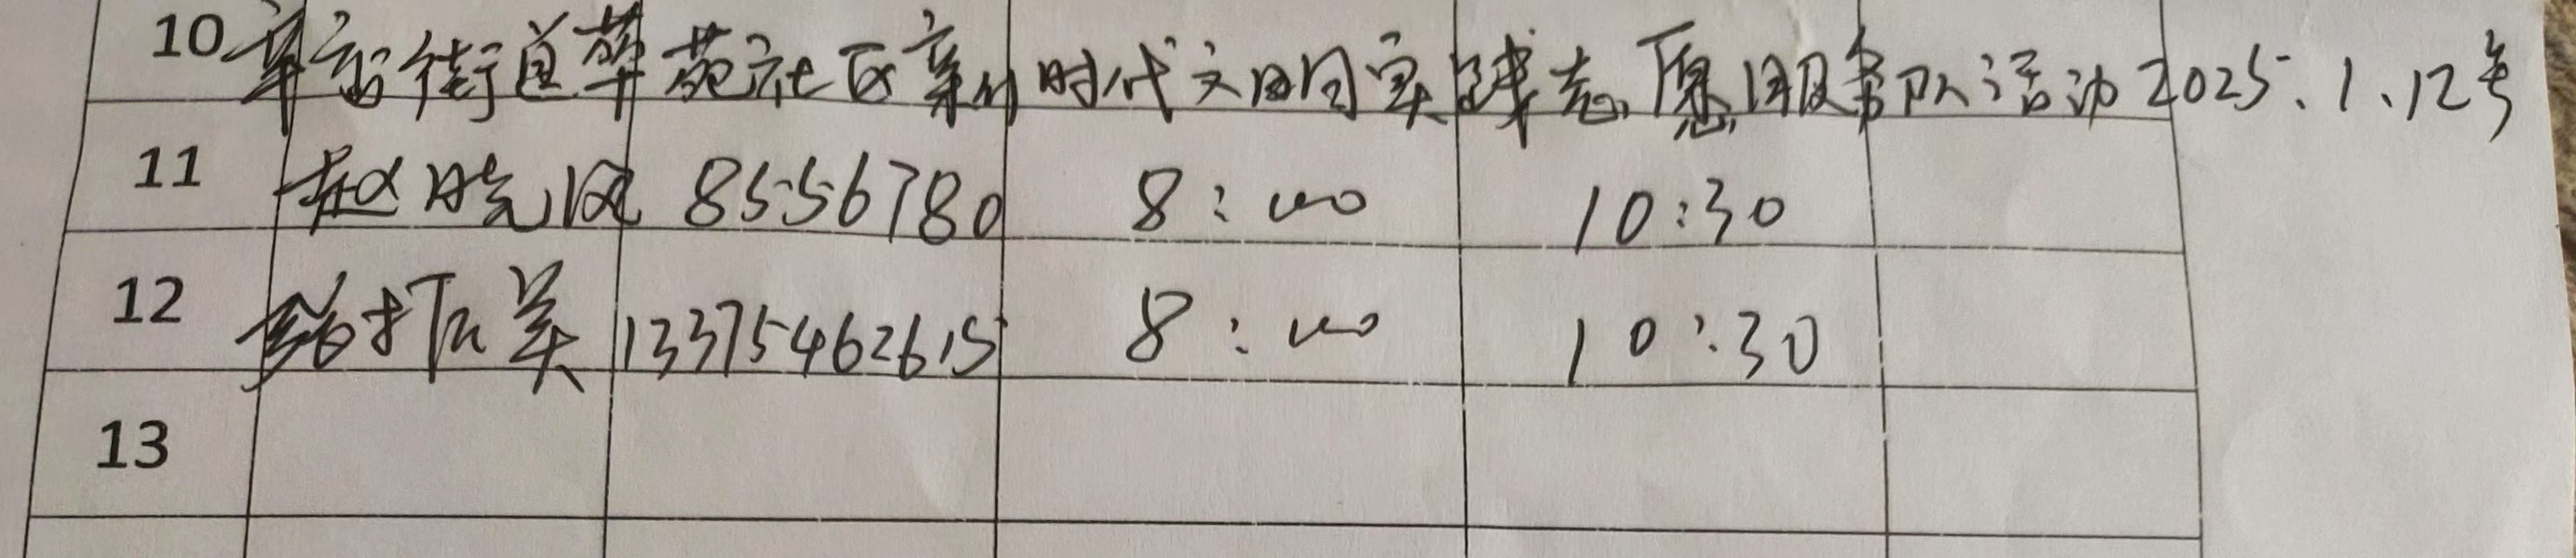 10 辛店街道苹苑社区新时代文明实践志愿服务队活动2025.1.12号
11 赵晓凤 8556780 8:00 10:30
12 美 13375462615 8:00 10:30
13